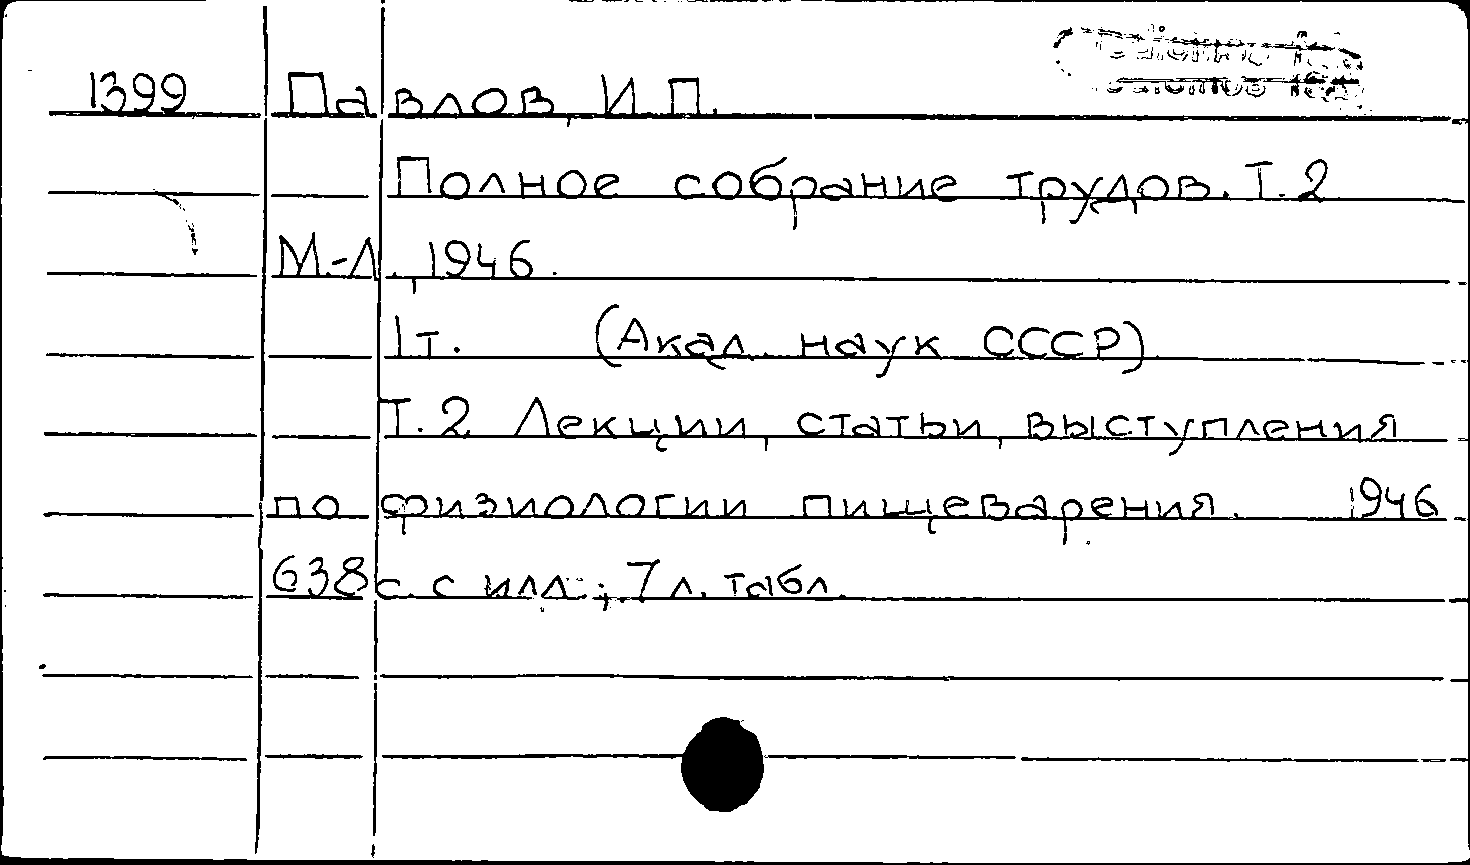 1399 Павлов, И.П.
Полное собрание трудов. Т.2
М.-Л., 1946.
1т. (Акад. наук СССР)
Т.2 Лекции, статьи, выступления
по физиологии пищеварения. 1946
638с. с илл.; 7 л. табл.